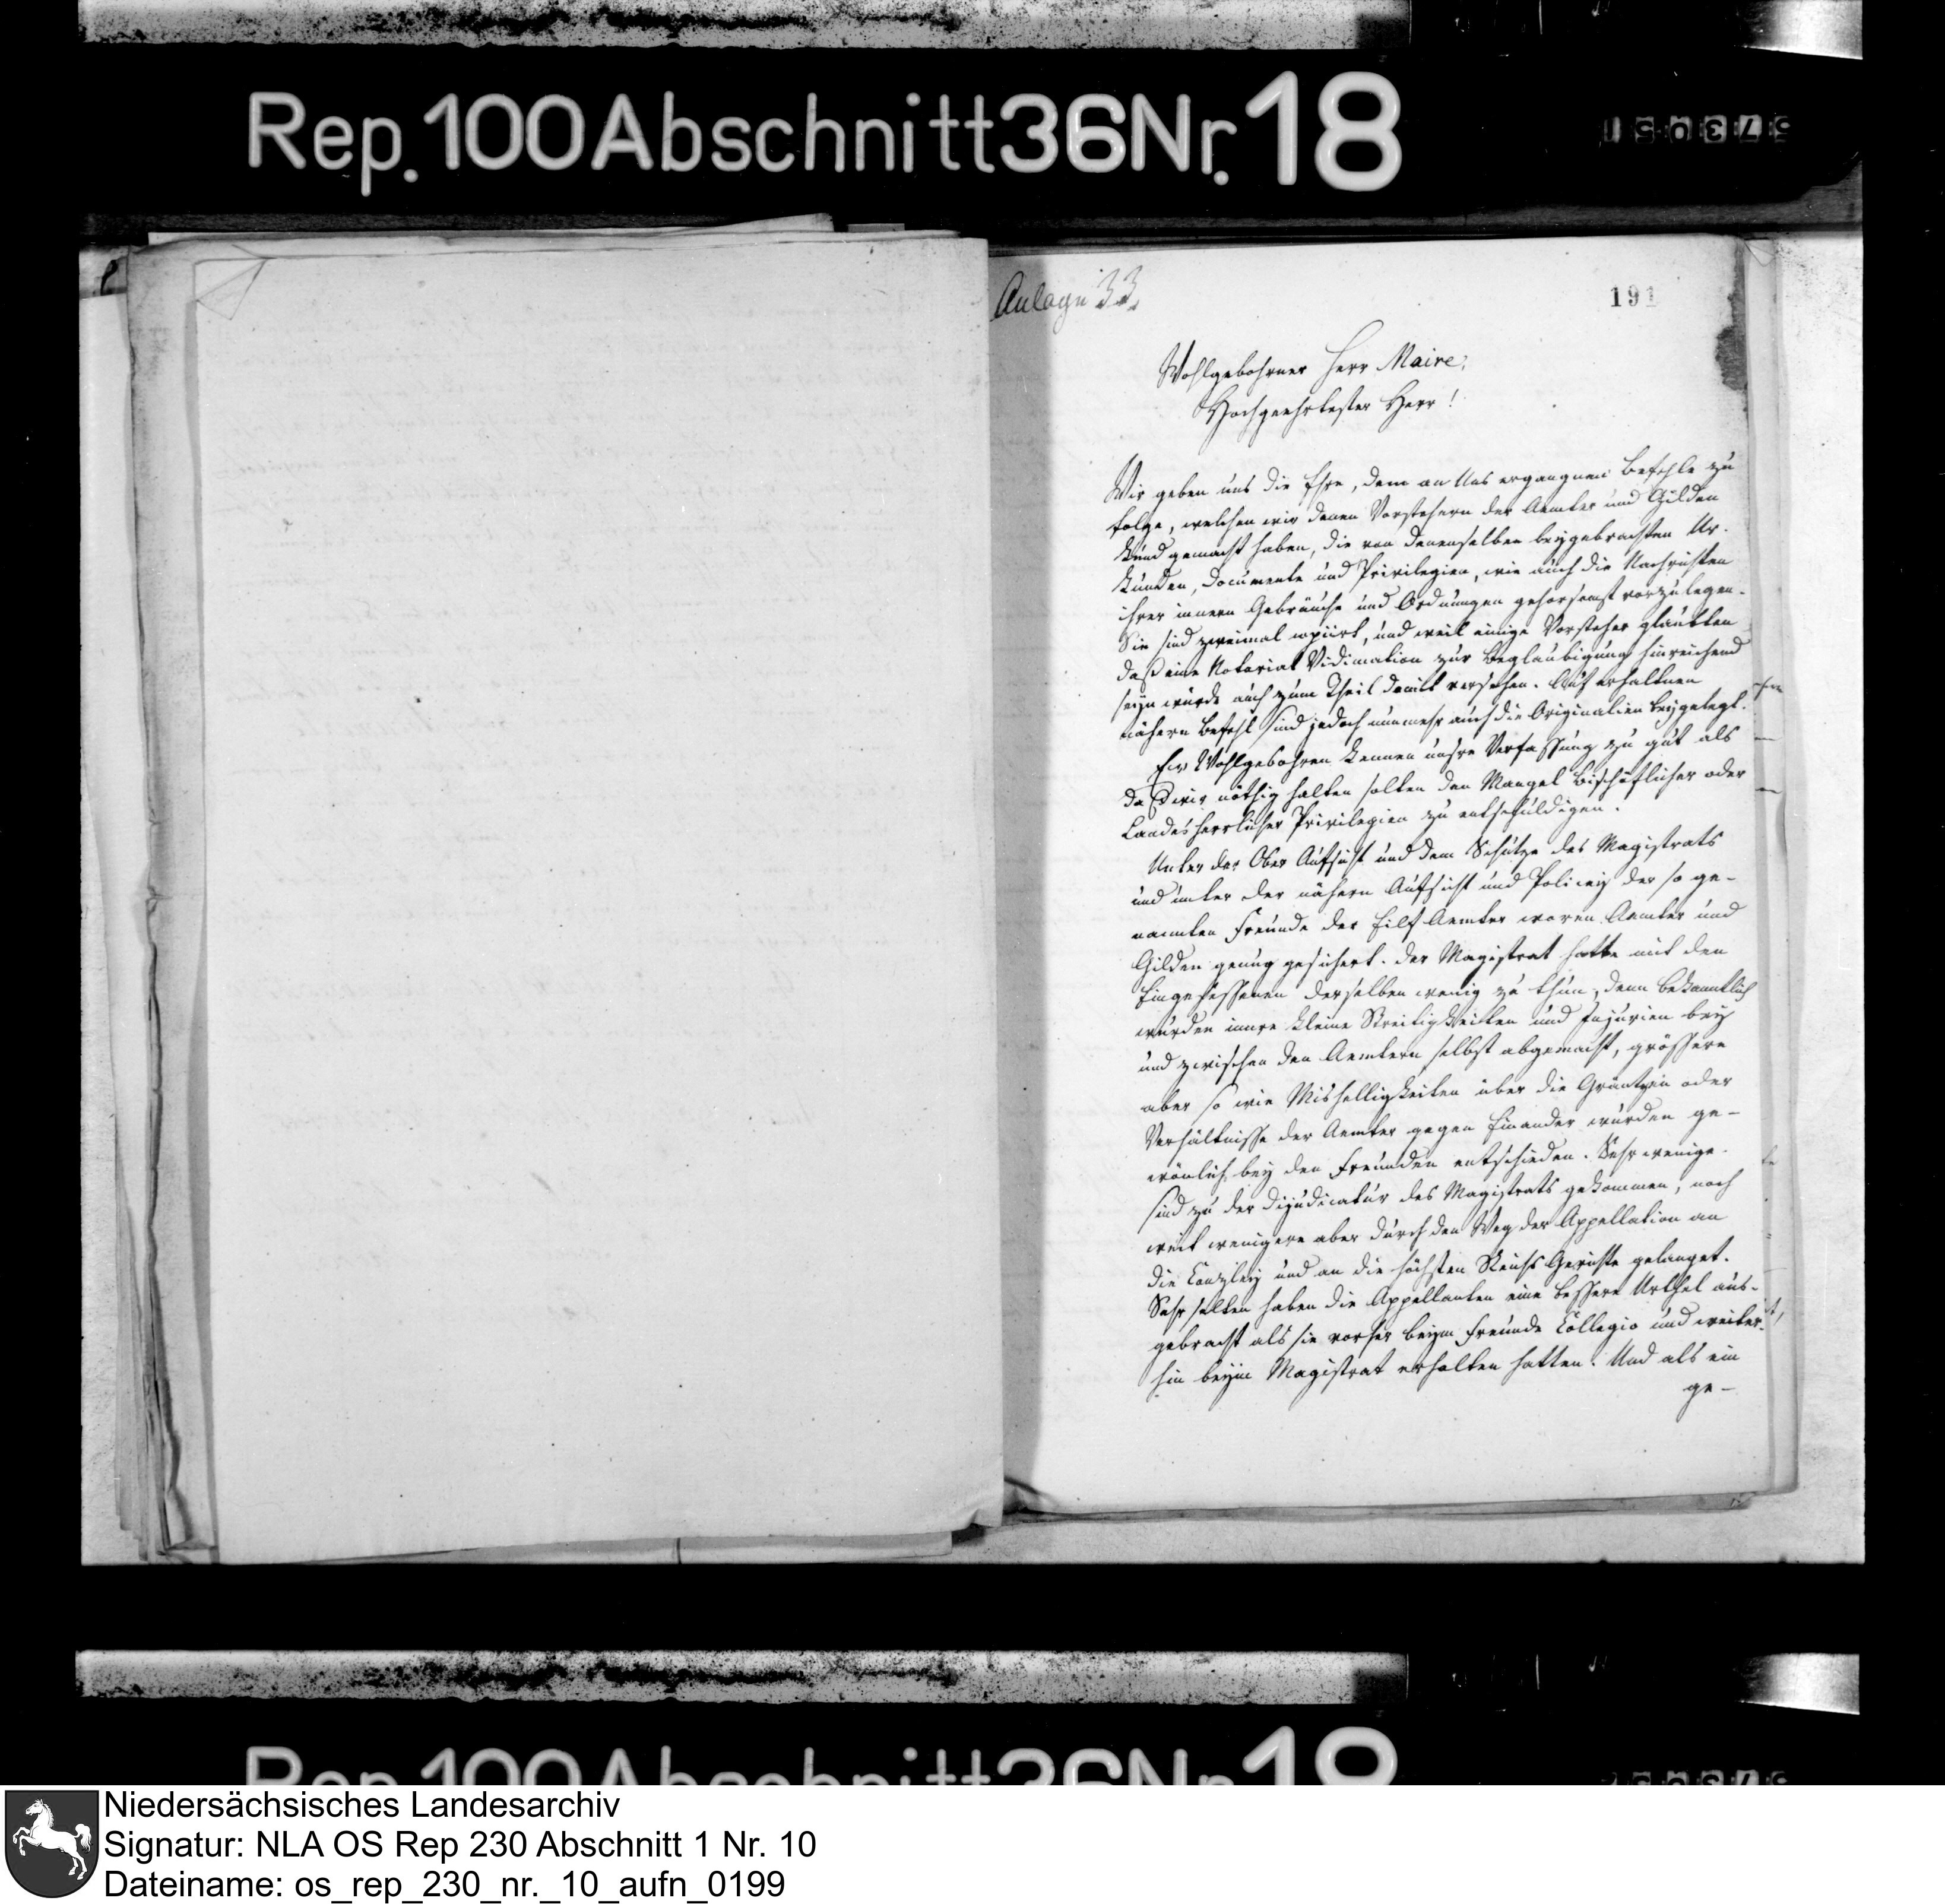 Rep. 100 Abschnitt 36 Nr. 18
Anlage 33.
191
Wohlgebohrner Herr Maire,
Hochgeehrtester Herr!
Wir geben uns die Ehre, dem an Uns ergangnen Befehle zu
folge, welchen wir denen Vorstehern der Aemter und Gilden
kund gemacht haben, die von denenselben beygebrachten Ur-
kunden, Documente und Privilegien, wie auch die Nachrichten
ihrer innern Gebräuche und Ordnungen gehorsamst vorzulegen.
Sie sind zweimal copiirt, und weil einige Vorsteher glaubten
daß eine Notariat Vidimation zur Beglaubigung hinreichend
seyn würde auch zum Theil damit versehen. Auf erhaltnen
nähern Befehl sind jedoch nunmehr auch die Originalien beygelegt.
Ew. Wohlgebohren kennen unsre Verfassung zu gut als
daß wir nöthig halten solten den Mangel Bischöflicher oder
Landesherrlicher Privilegien zu entschuldigen.
Unter der Ober Aufsicht und dem Schutze des Magistrats
und unter der nähern Aufsicht und Policey der so ge-
nannten Freunde der Eilf Aemter waren Aemter und
Gilden genug gesichert. Der Magistrat hatte mit den
Eingesessenen derselben wenig zu thun, denn bekanntlich
wurden innre kleine Streitigkeiten und Injurien bey
und zwischen den Aemtern selbst abgemacht, grössere
aber so wie Mishelligkeiten über die Gräntzen oder
Verhältnisse der Aemter gegen Einander wurden ge-
wönlich bey den Freunden entschieden. Sehr wenige
sind zu der Dijudicatur des Magistrats gekommen, noch
weit wenigere aber durch den Weg der Appellation an
die Canzley und an die höchsten Reichs Gerichte gelanget.
Sehr selten haben die Appellanten eine bessere Urthel aus-
gebracht als sie vorher beym Freunde Collegio und weiter-
hin beym Magistrat erhalten hatten. Und als ein
ge-
Niedersächsisches Landesarchiv
Signatur: NLA OS Rep 230 Abschnitt 1 Nr. 10
Dateiname: os_rep_230_nr._10_aufn_0199